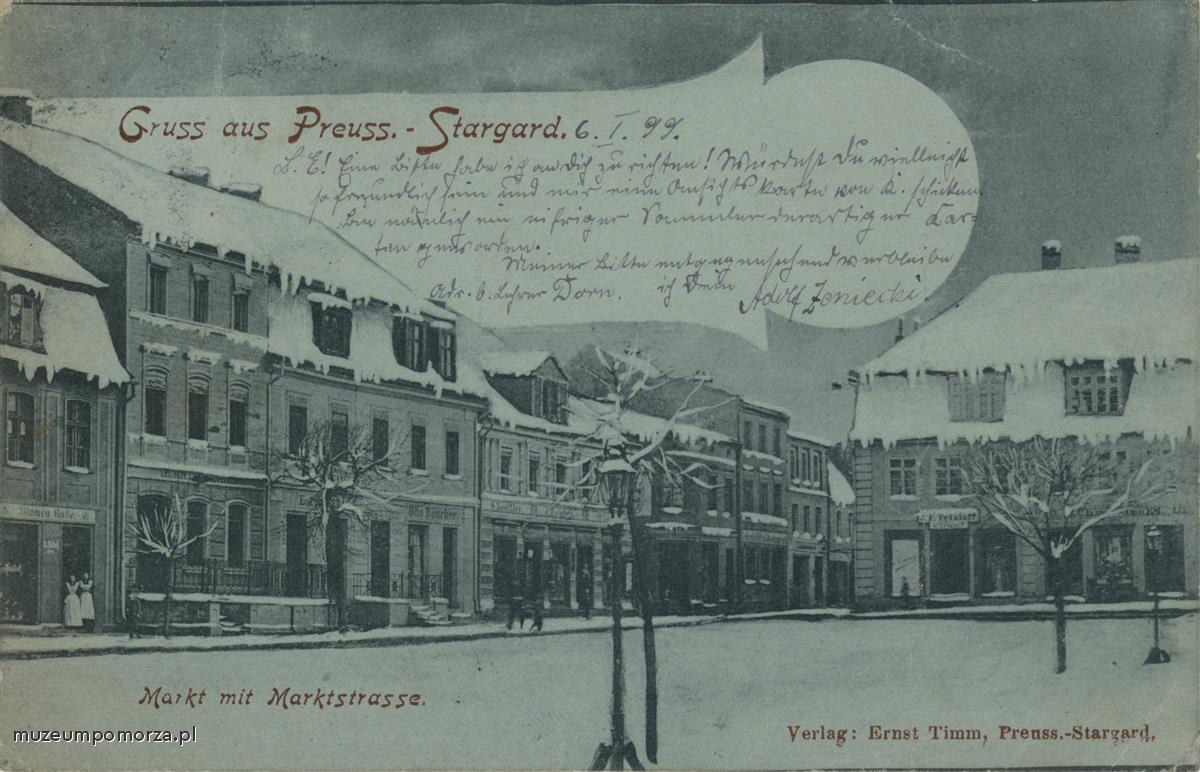 Gruss aus Preuss.-Stargard. 6. I. 99.
L. E! Eine Bitte habe ich an Dich zu richten! Würdest Du vielleicht
so freundlich sein und mir eine Ansichtskarte von K. schicken.
Bin nämlich ein eifriger Sammler derartiger Kar-
ten geworden.
Meiner Bitte entgegensehend verbleibe
Adr. b. Lehrer Dorn. ich Dein Adolf
Blumen Halle.
Otto Böncher
Markt mit Marktstrasse.
Verlag: Ernst Timm, Preuss.-Stargard.
muzeumpomorza.pl